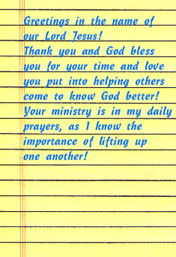 Greetings in the name of
our Lord Jesus!
Thank you and God bless
you for your time and love
you put into helping others
come to know God better!
Your ministry is in my daily
prayers, as I know the
importance of lifting up
one another!